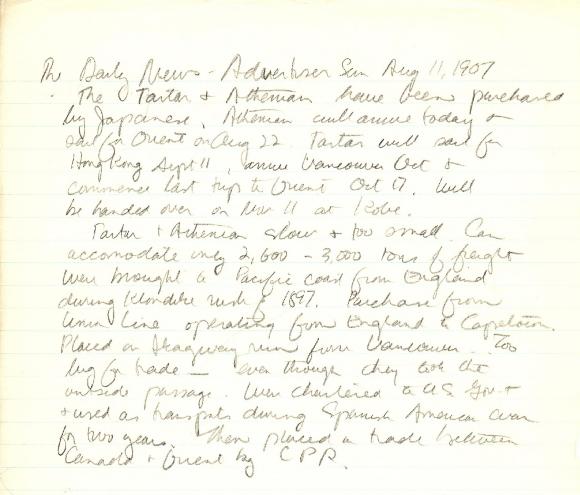 The Daily News-Advertiser Sun Aug 11, 1907
The Tartar + Athenian have been purchased
by Japanese. Athenian will arrive today +
sail for Orient on Aug 22. Tartar will sail for
Hong Kong Sept 11, arrive Vancouver Oct +
commence last trip to Orient Oct 17. Will
be handed over on Nov 11 at Kobe.
Tartar + Athenian slow + too small. Can
accomodate only 2,600 - 3,000 tons of freight
Were brought to Pacific coast from England
during Klondike rush of 1897. Purchase from
Union Line operating from England to Capetown.
Placed on Skagway run from Vancouver. Too
big for trade - even though they took the
outside passage. Were chartered to U.S. Gov't
+ used as transports during Spanish American war
for two years. Then placed in trade between
Canada + Orient by CPR.